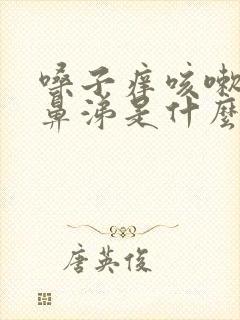 嗓子痒咳嗽
鼻涕是什麼
唐英俊